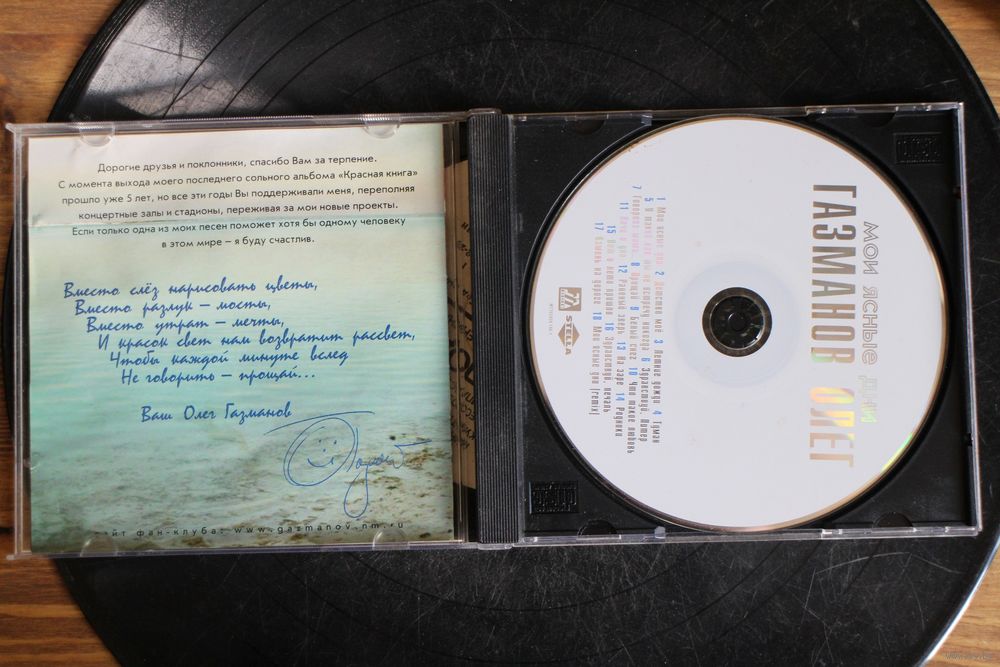 Дорогие друзья и поклонники, спасибо Вам за терпение.
С момента выхода моего последнего сольного альбома «Красная книга»
прошло уже 5 лет, но все эти годы Вы поддерживали меня, переполняя
концертные залы и стадионы, переживая за мои новые проекты.
Если только одна из моих песен поможет хотя бы одному человеку
в этом мире – я буду счастлив.
Вместо слёз нарисовать цветы,
Вместо разлук – мосты,
Вместо утрат – мечты,
И красок свет нам возвратит рассвет,
Чтобы каждой минуте вслед
Не говорить – прощай...
Ваш Олег Газманов
айт фан-клуба: www.gazmanov.nm.ru
МОИ ЯСНЫЕ ДНИ
ГАЗМАНОВ ОЛЕГ
1 Мои ясные дни 2 Детство моё 3 Летние дожди 4 Туман
5 встречу никогда 6 Здравствуй, Питер
7 8 Прощай 9 Белый снег 10 Что такое любовь
11 12 Раненый зверь 13 На заре 14 Родники
15 16 Здравствуй, печаль
17 Камень на дороге 18 Мои ясные дни (remix)
STELLA